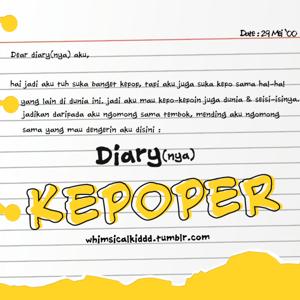 Date : 29 Mei '00
Dear diary(nya) aku,
hai jadi aku tuh suka banget kepop, tapi aku juga suka kepo sama hal-hal
yang lain di dunia ini. jadi aku mau kepo-kepoin juga dunia & seisi-isinya.
jadikan daripada aku ngomong sama tembok, mending aku ngomong
sama yang mau dengerin aku disini :
Diary(nya)
KEPOPER
whimsicalkiddd.tumblr.com